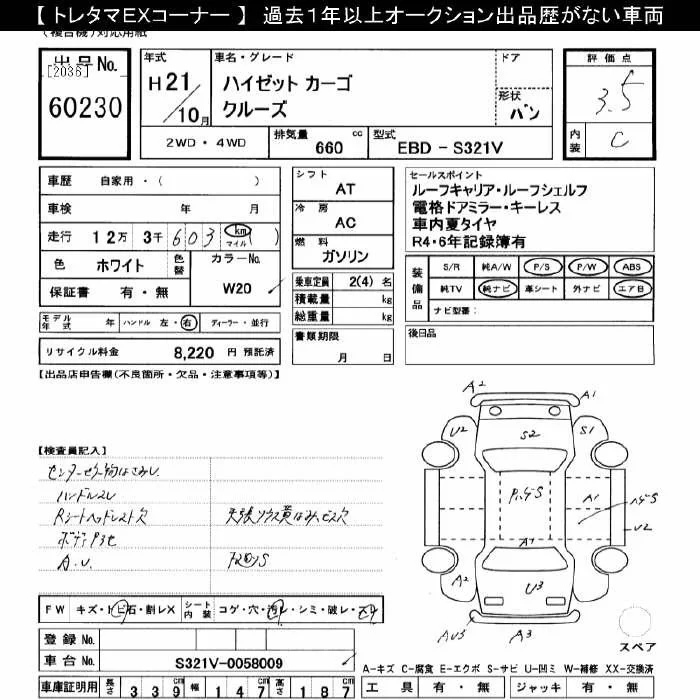 【 トレタマEXコーナー 】 過去1年以上オークション出品歴がない車両
(複合機)対応用紙
出品No.
[2036]
60230
年式
H21
10月
車名・グレード
ハイゼット カーゴ
クルーズ
ドア
形状
バン
評価点
3.5
内装
C
2WD・4WD
排気量
660
cc
型式
EBD - S321V
車歴 自家用・( )
車検 年 月
走行 12万 3千 603 km マイル ( )
色 ホワイト 色替 カラーNo.
保証書 有・無 W20
モデル年式 年 ハンドル 左・右 ディーラー・並行
リサイクル料金 8,220 円 預託済
シフト
AT
冷房
AC
燃料
ガソリン
乗車定員 2(4) 名
積載量 kg
総重量 kg
書類期限
月 日
セールスポイント
ルーフキャリア・ルーフシェルフ
電格ドアミラー・キーレス
車内夏タイヤ
R4・6年記録簿有
装備品
S/R 純A/W P/S P/W ABS
純TV 純ナビ 革シート 外ナビ エアB
ナビ型番:
後日品
【出品店申告欄(不良箇所・欠品・注意事項等)】
【検査員記入】
ハンドルスレ
Rシートヘッドレスト欠
A.U.
FW キズ・トビ石・割レX シート内装 コゲ・穴・汚レ・シミ・破レ・
登録No.
車台No. S321V-0058009
車庫証明用 長さ 339cm 幅 147cm 高さ 187cm
A2
A1
U2
S2
S1
A1
U2
A1
A2
U3
A2
A3
スペア
A-キズ C-腐食 E-エクボ S-サビ U-凹ミ W-補修 XX-交換済
工具 有・無 ジャッキ 有・無